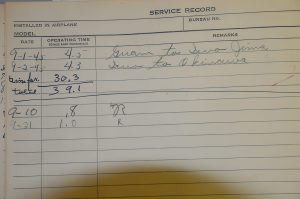 SERVICE RECORD
INSTALLED IN AIRPLANE
BUREAU NO.
MODEL
DATE OPERATING TIME REMARKS
9-1-45 4.5 Guam to Iwo Jima
9-2-45 4.3 Iwo to Okinawa
30.3
39.1
9-10 .8 R
9-21 1.0 R